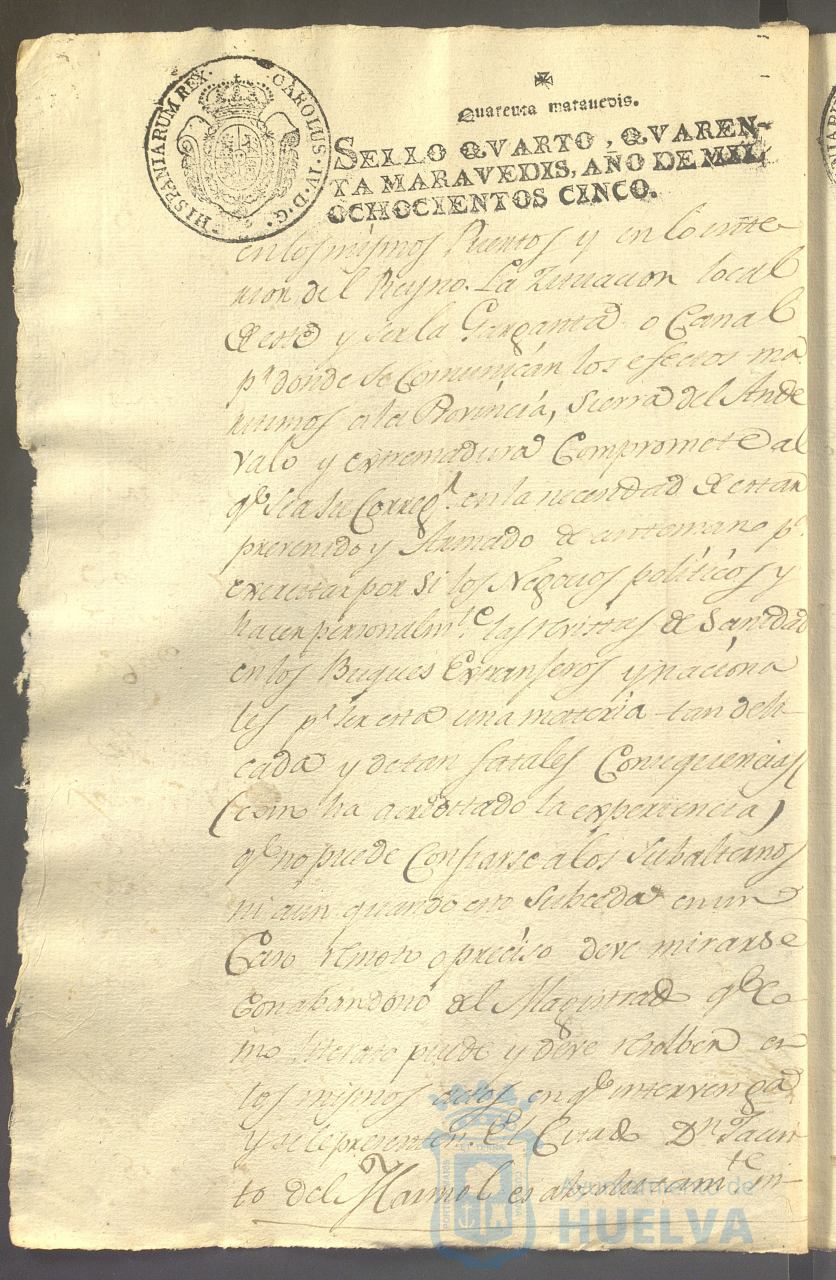 HISPANIARUM REX · CAROLUS · IV · D · G ·
Quarenta maravedis.
SELLO QVARTO, QVAREN-
TA MARAVEDIS, AÑO DE MIL
OCHOCIENTOS CINCO.
en los mismos Puertos y en lo inte
rior del Reyno. La situacion local
de esta y ser la Garganta o Canal
pr donde se Comunican los efectos ma
ritimos a la Provincia, Sierra del Ande
valo y extremadura Compromete al
qe sea su Corregr en la necesidad de estar
prevenido y Armado de antemano pa
exercitar por si los Negocios politicos y
hacer personalmte las visitas de Sanidad
en los Buques Extranjeros y naciona
les pr ser esta una materia tan deli-
cada y de tan fatales Consequencias
(como ha acreditado la experiencia)
qe no puede Confiarse a los Subalternos
ni aun quando esto Subceda en un
Caso remoto o preciso deve mirarse
con abandono del Magistrado qe co
mo literato puede y deve resolber en
los mismos actos en qe intervenga
y se le presenten. El Citado Dn Jacin
to del Marmol es absolutamte in-
Ayuntamiento de
HUELVA